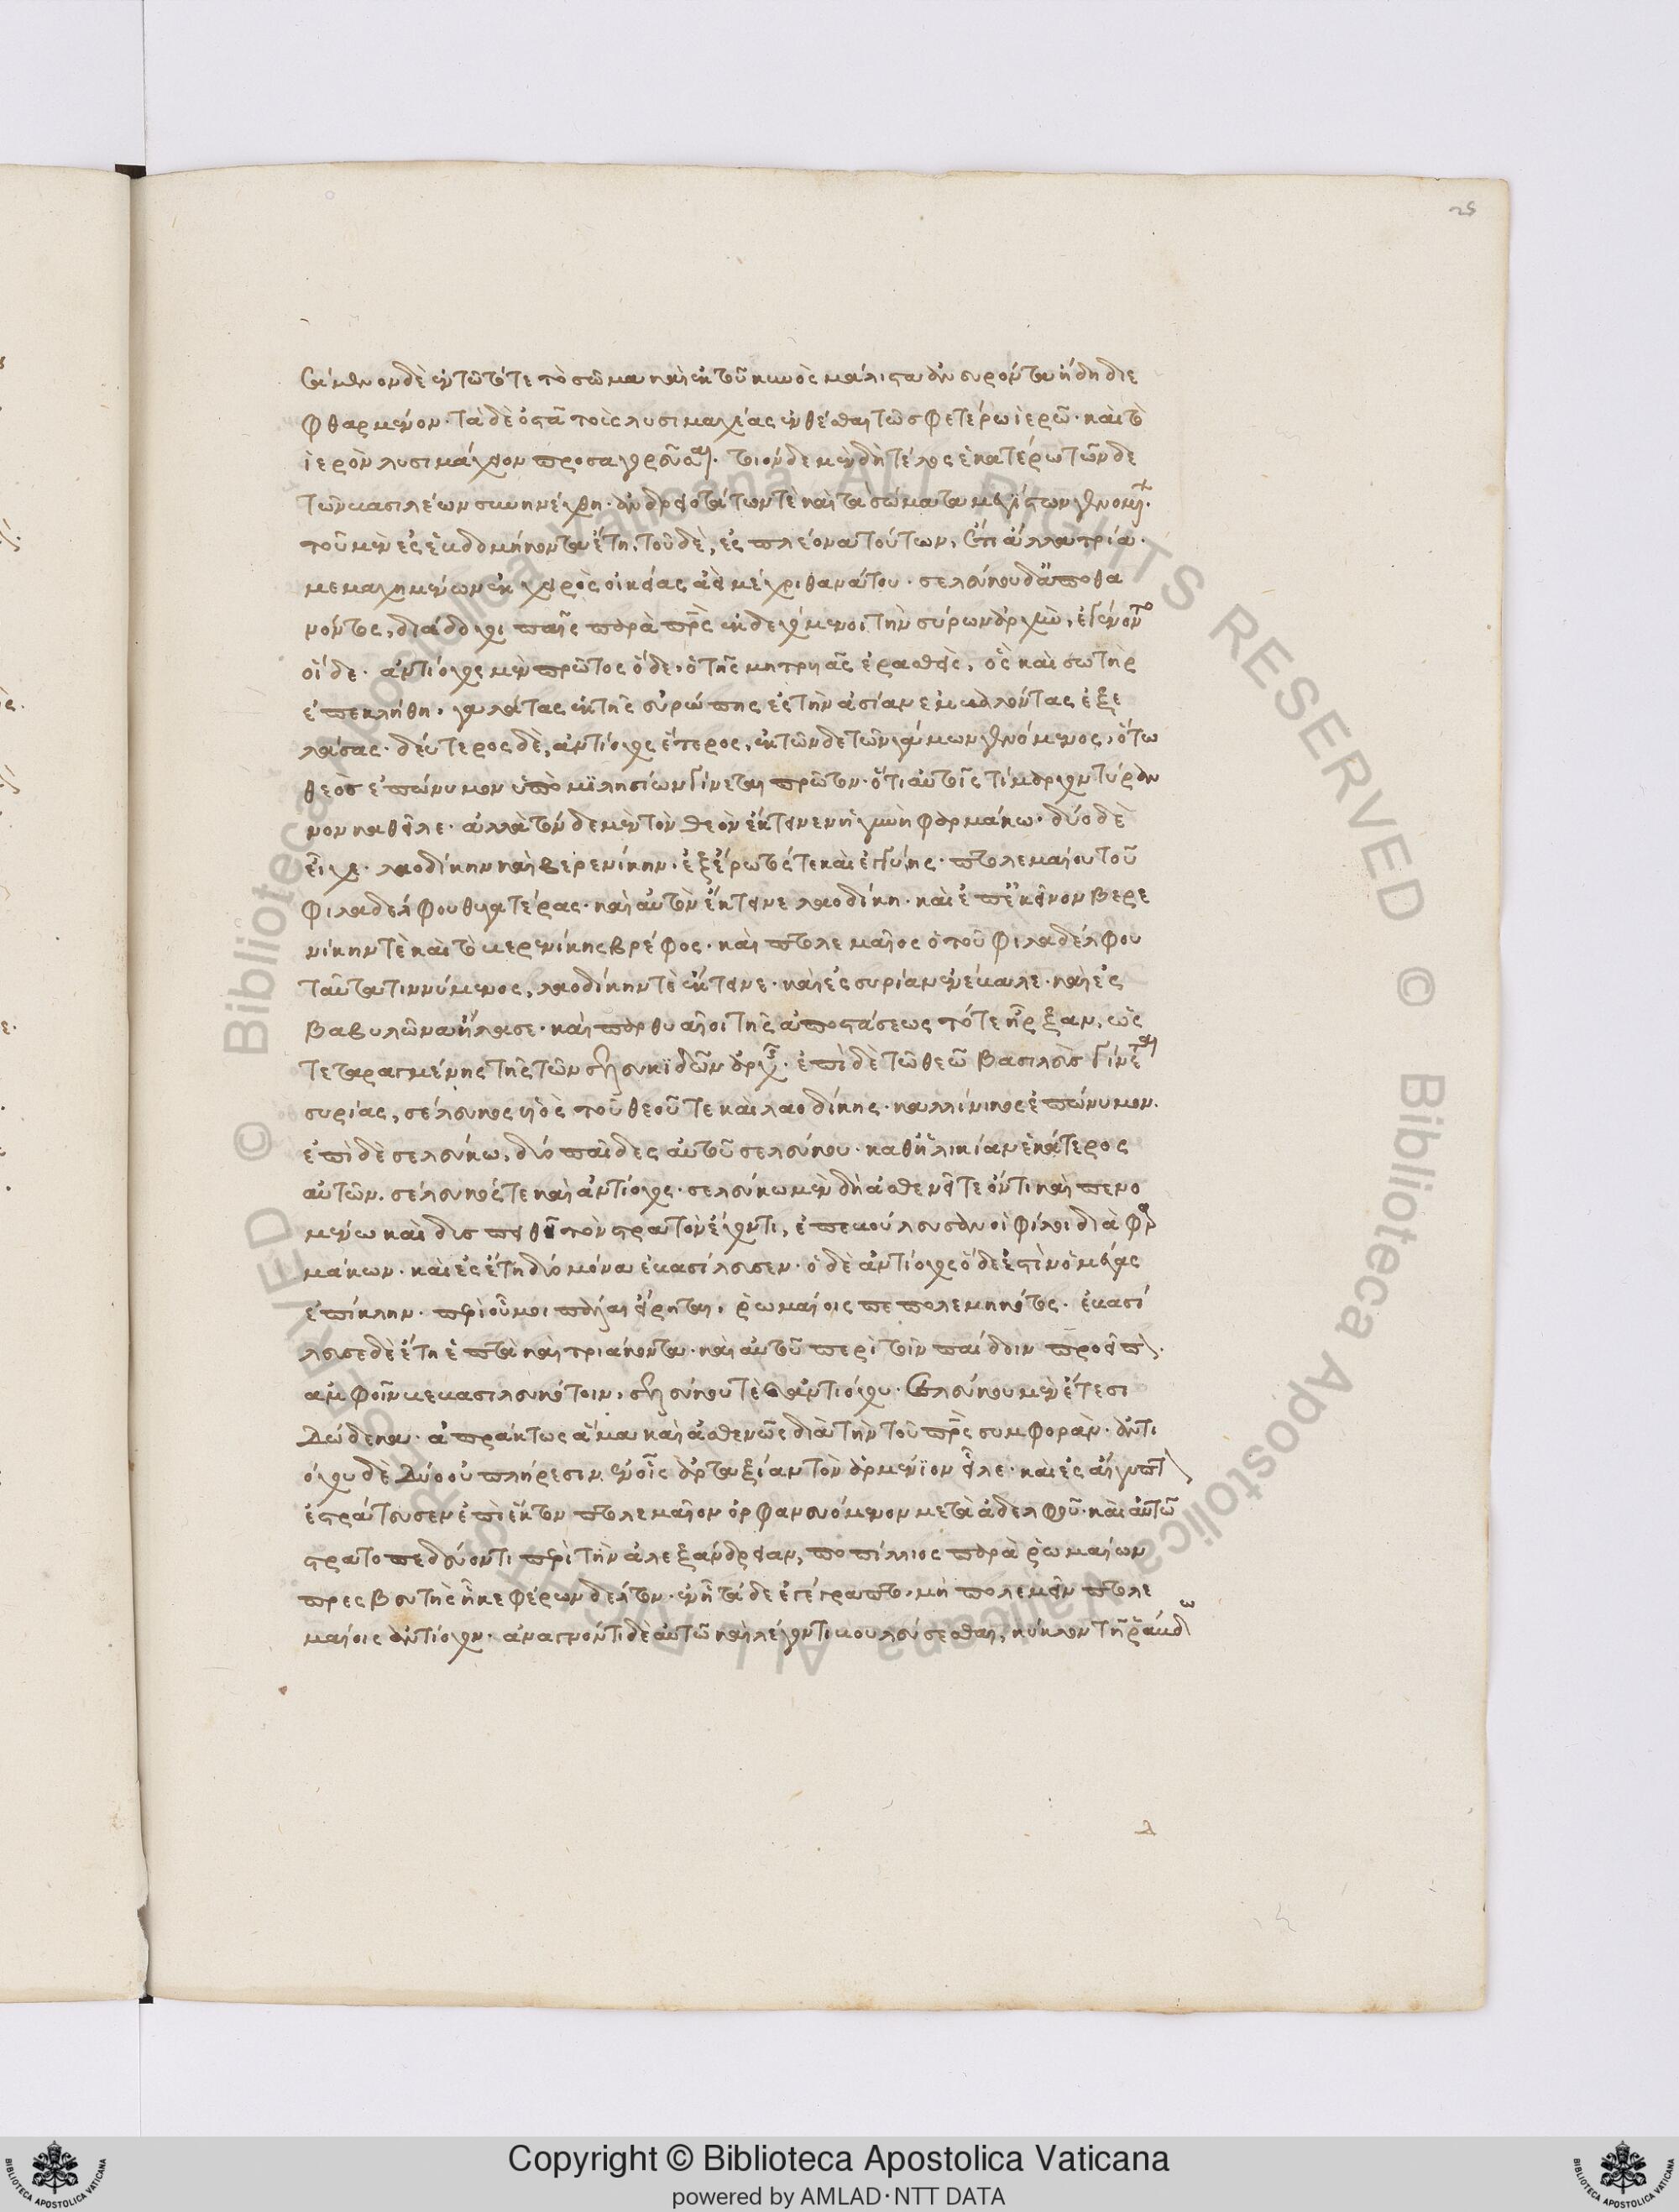 δὲ ἐν τῶ τότε τὸ σῶμα καὶ ἐκ τοῦ κυνὸς μάλιστα ἀνευρόντα ἤδη διε
φθαρμένον· τὰ δὲ ὀστᾶ τοὶς λυσιμαχέας ἐνθέσθαι τῶ σφετέρω ἱερῶ· καὶ τὸ
ἱερὸν λυσιμάχειον προσαγορεῦσαι. τοιόνδε μὲν δὴ τέλος ἑκατέρω τῶνδε
τῶν βασιλέων συνηνέχθη· ἀνδρειοτάτων τὲ καὶ τὰ σώματα μεγίστων
τοῦ μὲν ἐς ἑβδομήκοντα ἔτη, τοῦ δὲ, ἐς πλέονα τούτων, ἔτι ἄλλα τρία·
μεμαχημένων ἐκ χειρὸς οἰκείας ἀεὶ μέχρι θανάτου· σελεύκου δ' ἀποθα
νόντος, διάδοχοι παῖς παρὰ πρς ἐκδεχόμενοι τὴν σύρων ἀρχὴν, ἐγένοντο
οἵδε· ἀντίοχος μὲν πρῶτος ὅδε, ὁ τῆς μητρυιᾶς ἐρασθεὶς, ὃς καὶ σωτὴρ
ἐπεκλήθη, γαλάτας ἐκ τῆς εὐρώπης ἐς τὴν ἀσίαν ἐμβαλόντας ἐξε
λάσας· δεύτερος δὲ, ἀντίοχος ἕτερος, ἐκ τῶνδε τῶν γάμων γενόμενος, ὅτω
θεὸς ἐπώνυμον ὑπὸ μιλησίων γίνεται πρῶτον· ὅτι αὐτοῖς τίμαρχον τύραν
νον καθεῖλε· ἀλλὰ τόνδε μὲν τὸν θεὸν ἔκτεινεν ἡ γυνὴ φαρμάκω· δύο δὲ
εἶχε· λαοδίκην καὶ βερενίκην, ἐξ ἔρωτός τε καὶ ἐγγύης· πτολεμαίου τοῦ
φιλαδέλφου θυγατέρας· καὶ αὐτὸν ἔκτεινε λαοδίκη· καὶ ἐπ' ἐκεῖνον βερε
νίκην τὲ καὶ τὸ βερενίκης βρέφος· καὶ πτολεμαῖος ὁ τοῦ φιλαδέλφου
ταῦτα τιννύμενος, λαοδίκην τὲ ἔκτεινε· καὶ ἐς συρίαν ἐνέβαλε· καὶ ἐς
βαβυλῶνα ἤλασε· καὶ παρθυαῖοι τῆς ἀποστάσεως τότε ἦρξαν, ὡς
τεταραγμένης τῆς τῶν σελευκιδῶν ἀρχῆς· ἐπὶ δὲ τῶ θεῶ βασιλεὺς γίνεται
συρίας, σέλευκος υἱὸς τοῦ θεοῦ τε καὶ λαοδίκης· καλλίνικος ἐπώνυμον.
ἐπὶ δὲ σελεύκω, δύο παῖδες αὐτοῦ σελεύκου· καθ' ἡλικίαν ἑκάτερος
αὐτῶν. σέλευκός τε καὶ ἀντίοχος· σελεύκω μὲν δὴ ἀσθενεῖ τε ὄντι καὶ πενο
μένω καὶ δυσπειθῆ τὸν στρατὸν ἔχοντι, ἐπεβούλευσαν οἱ φίλοι διὰ φαρ
μάκων· καὶ ἐς ἔτη δύο μόνα ἐβασίλευσεν· ὁ δὲ ἀντίοχος ὅδε ἐστὶν ὁ μέγας
ἐπίκλην· περὶ οὗ μοι πάλαι εἴρηται, ῥωμαίοις πεπολεμηκότος· ἐβασί
λευσε δὲ ἔτη ἑπτὰ καὶ τριάκοντα· καὶ αὐτοῦ περὶ τοῖν παίδοιν προεῖπον
ἀμφοῖν βεβασιλευκότοιν, σελεύκου τὲ καὶ ἀντιόχου· σελεύκου μὲν ἔτεσι
δώδεκα· ἀπράκτως ἅμα καὶ ἀσθενῶς διὰ τὴν τοῦ πρς συμφορὰν· ἀντι
όχου δὲ δύο οὐ πλήρεσιν, ἐν οἷς ἀρταξίαν τὸν ἀρμένιον εἷλε· καὶ ἐς αἴγυπτον
ἐστράτευσεν ἐπὶ ἕκτον πτολεμαῖον ὀρφανευόμενον μετὰ ἀδελφοῦ· καὶ αὐτῶ
στρατοπεδεύοντι περὶ τὴν ἀλεξάνδρειαν, ποπίλιος παρὰ ῥωμαίων
πρεσβευτὴς ἧκε φέρων δέλτον· ἐν ἧ τάδε ἐγέγραπτο, μὴ πολεμεῖν πτολε
μαίοις ἀντίοχον· ἀναγνόντι δὲ αὐτῶ καὶ λέγοντι βουλεύσεσθαι, κύκλον τῆ ῥάβδω